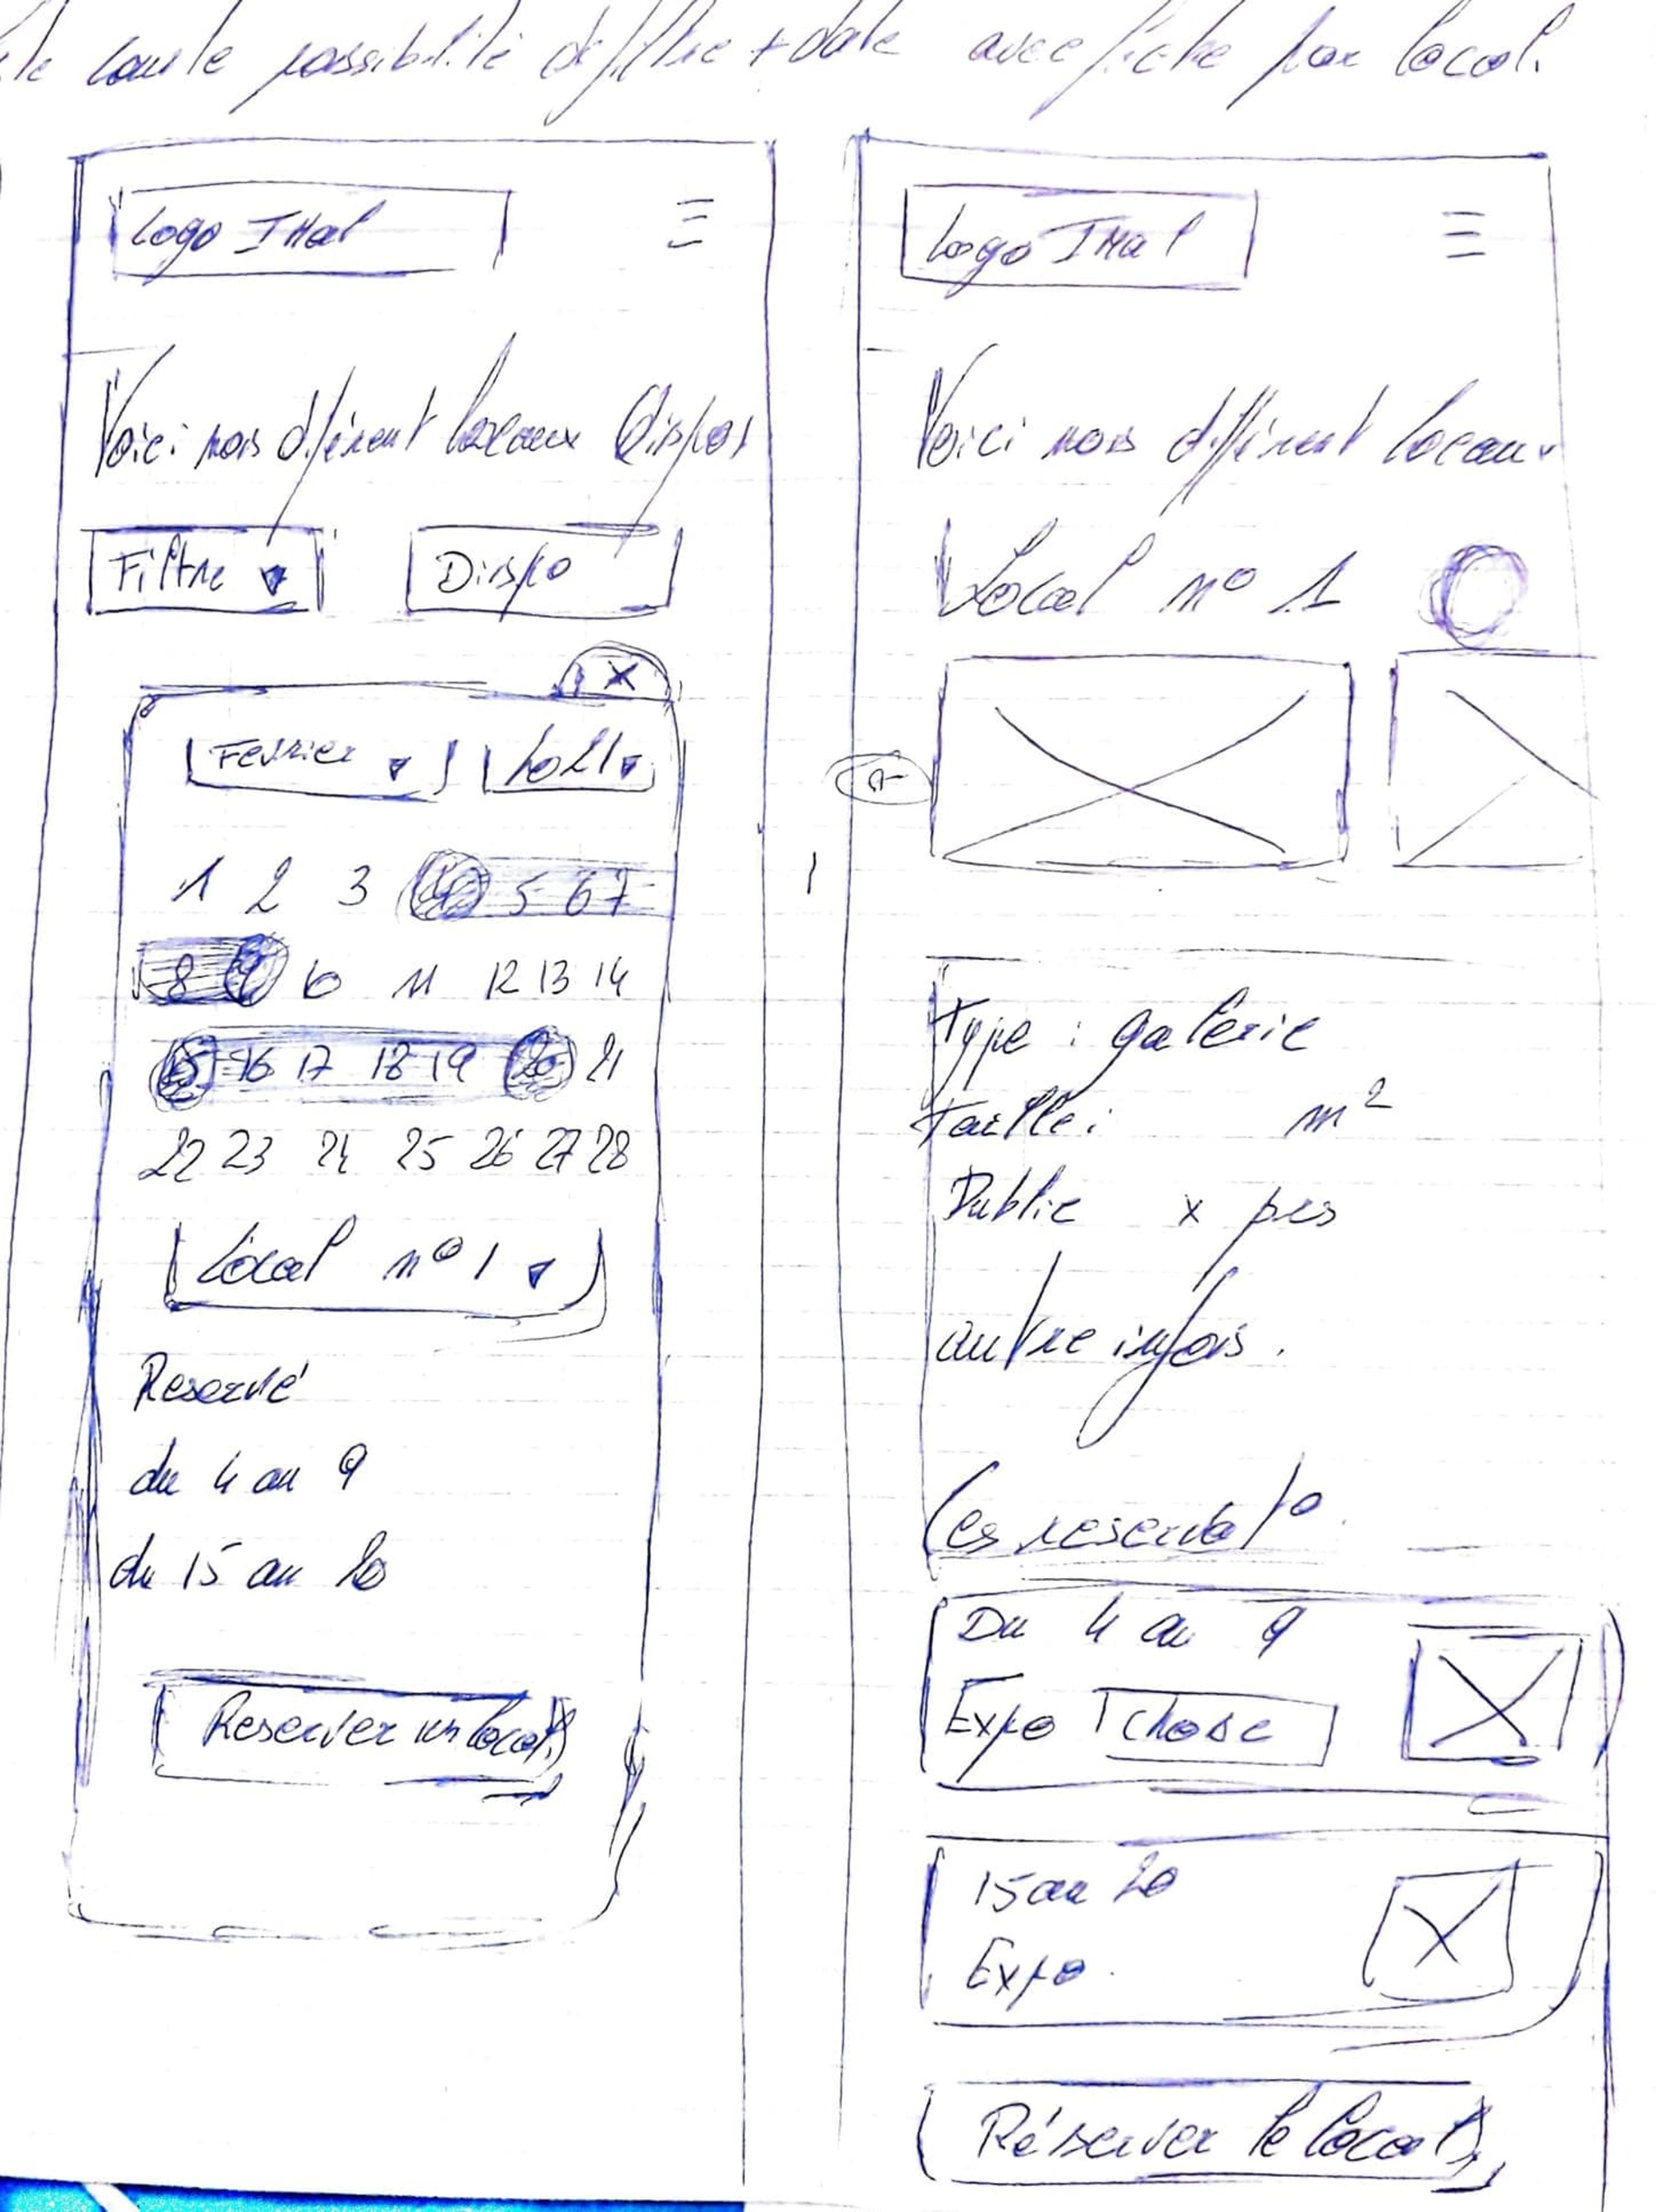 possibilité date avec fiche par local.
Logo IMal
Voici nos différent locaux Dispos
Filtre Dispo
X
Fevrier 2021
1 2 3 4 5 6 7
8 9 10 11 12 13 14
15 16 17 18 19 20 21
22 23 24 25 26 27 28
Local n° 1
Reservé
du 4 au 9
du 15 au 20
Reserver un local
Logo IMal
Voici nos différent locaux
Local n° 1
Type : galerie
taille : m²
Public x pers
autre infos.
Les reservat°
Du 4 au 9
Expo chose
15 au 20
Expo
Réserver le local